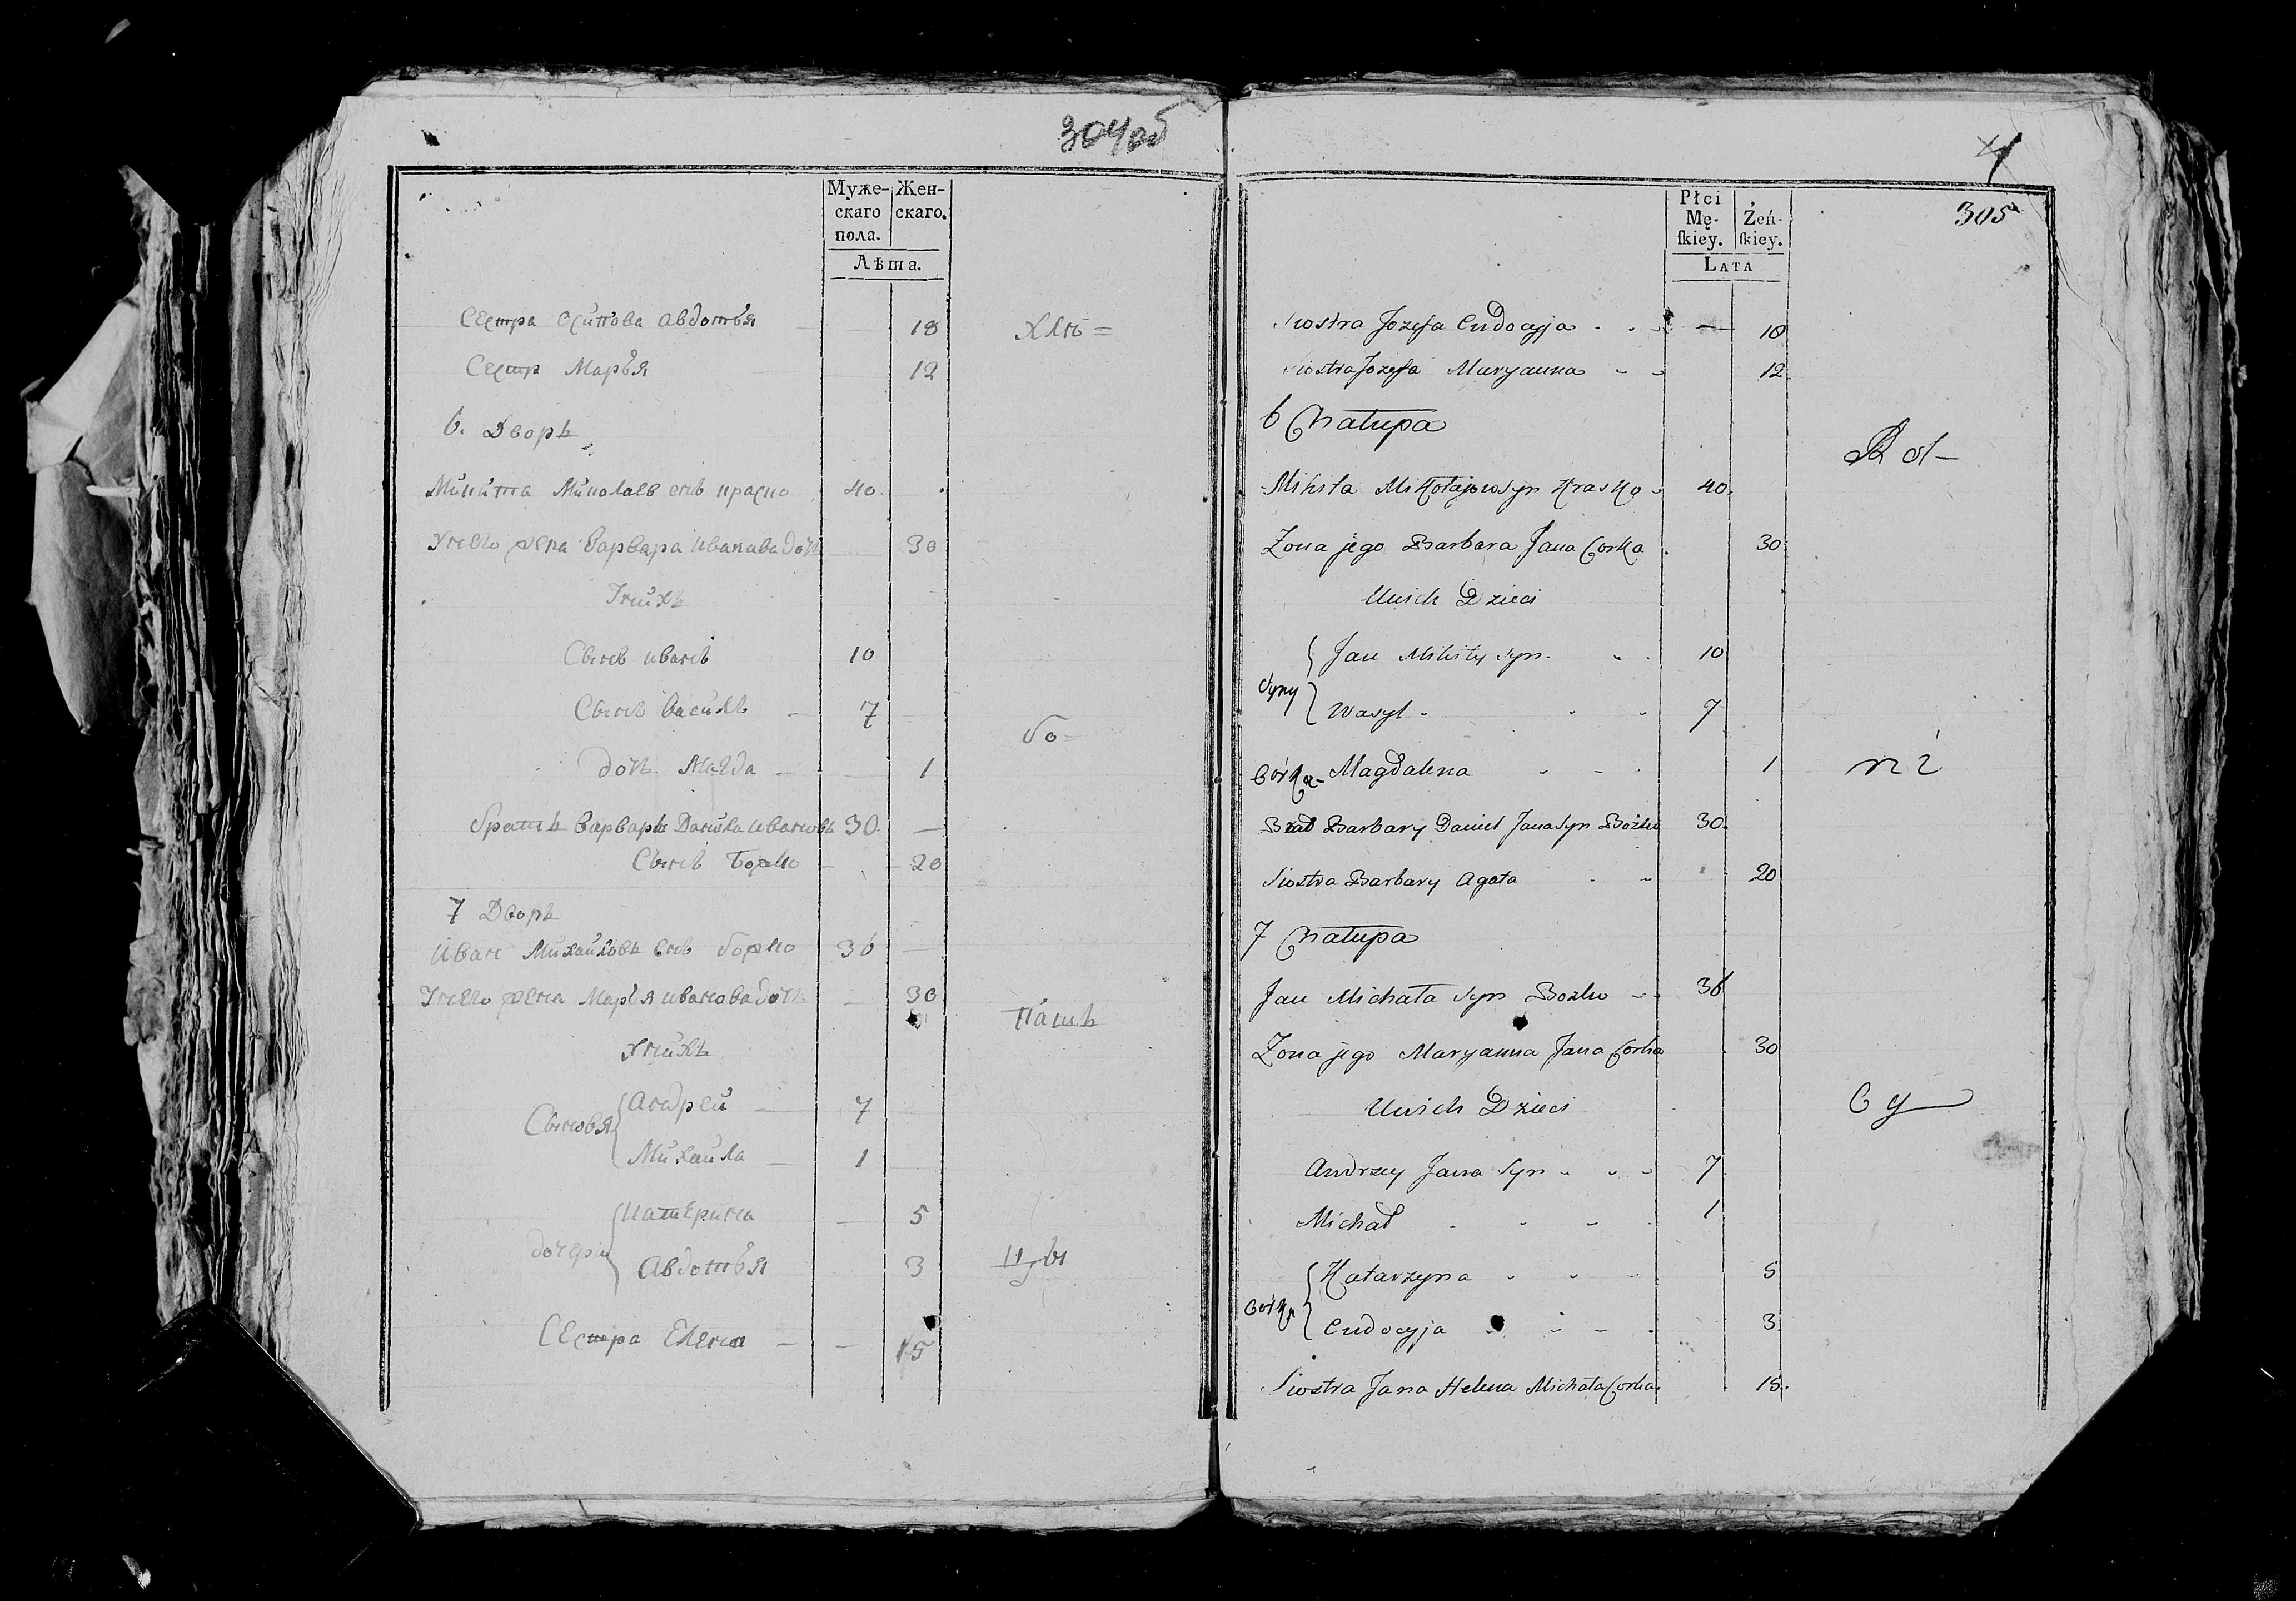 304об
Муже-
скаго
пола.
Жен-
скаго.
Лѣта.
Сестра Осипова Авдотья 18 Хлѣ=
Сестр Марья 12
6. Дворъ
Микита Миколаев снъ краско 40
Унего жена Варвара Иванава доч 30
Унихъ
Сынъ иванъ 10
Сынъ Василь 7
бо-
доч. Магда 1
братъ варваръ Данила ивановъ 30
Сынъ Божко 20
7 Дворъ
Иван Михайловъ снъ божко 36
Унего жена Марья иванова доч 30
Пашъ
Унихъ
Сыновя
Андрей 7
Михайла 1
дочери
Катерина 5
Авдотья 3
цы
Сестра Елена 15
4
305
Płci
Mę-
ſkiey.
Żeń-
ſkiey.
Lata
Siostra Jozefa Eudocyja 18
Siostra Jozefa Maryanna 12
6 Chałupa
Rol-
Mikita Mikołajow syn Krasko 40
Zona jego Barbara Jana Corka 30
Unich Dzieci
Syny
Jan Mikity syn 10
Wasyl 7
Córka Magdalena 1
ni
Brat Barbary Daniel Jana syn Bożko 30
Siostra Barbary Agata 20
7 Chałupa
Jan Michała syn Bozko 36
Zona jego Maryanna Jana Corka 30
Unich Dzieci
cy
Andrzey Jana Syn 7
Michał 1
Córki
Katarzyna 5
Eudocyja 3
Siostra Jana Helena Michała Corka 15